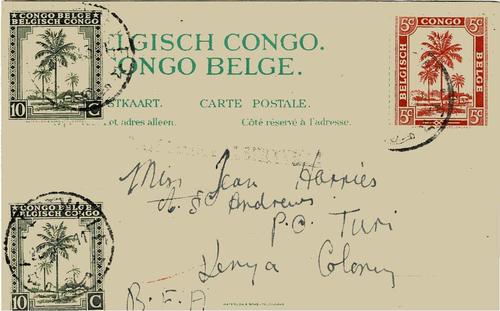 CONGO BELGE
BELGISCH CONGO
10 C
5c CONGO 5c
BELGISCH
BELGE
5c 5c
LGISCH CONGO.
ONGO BELGE.
STKAART. CARTE POSTALE.
et adres alleen. Côté réservé à l'adresse.
Miss Jean Harries
St Andrews
P.O. Turi
Kenya Colony
B.E.A
CONGO BELGE
BELGISCH CONGO
10 C